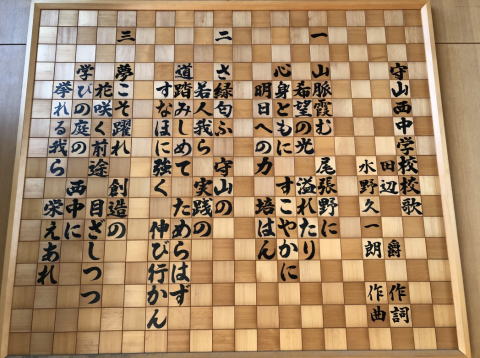 守山西中学校校歌
田辺 爵 作詞
水野久一朗 作曲
一
山脈霞む 尾張野に
希望の光 溢れたり
心身ともに すこやかに
明日への力 培はん
二
さ緑匂ふ 守山の
若人我ら 実践の
道踏みしめて ためらはず
すなほに強く 伸び行かん
三
夢こそ躍れ 創造の
花咲く前途 目ざしつつ
学びの庭の 西中に
挙れる我ら 栄えあれ